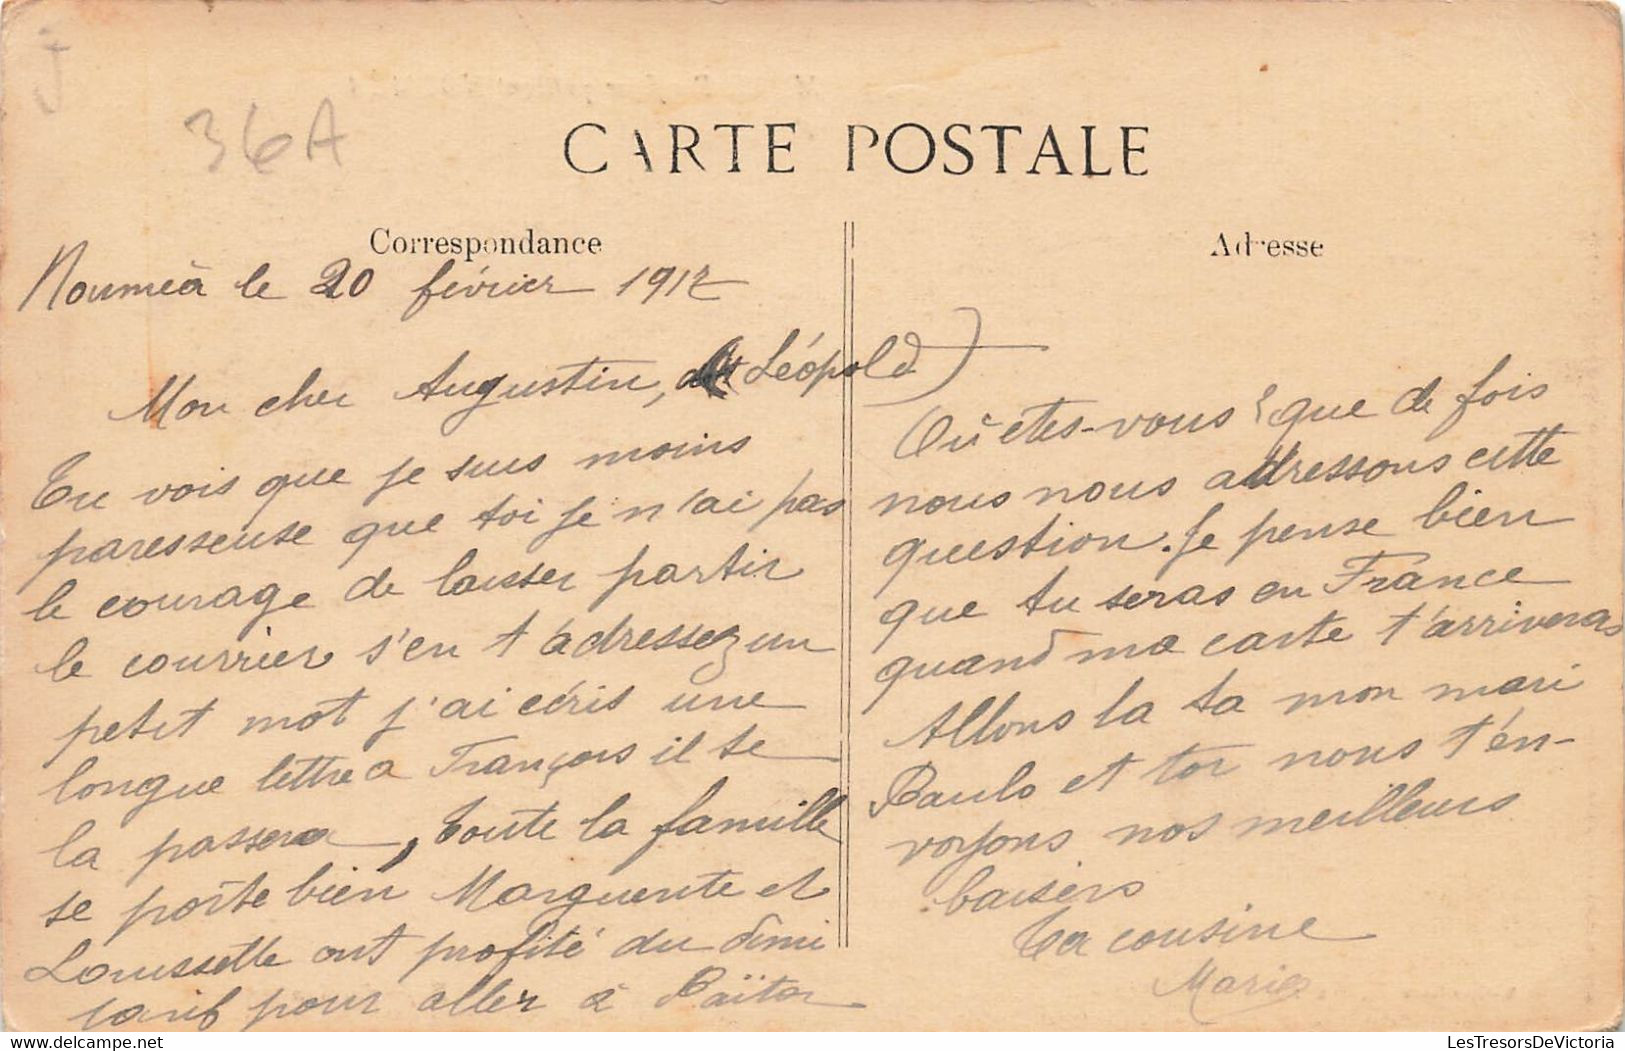 J
36A
CARTE POSTALE
Correspondance
Nouméa le 20 février 1917
Mon cher Augustin, Léopold)
Tu vois que je suis moins
paresseuse que toi je n'ai pas
le courage de laisser partir
le courrier s'en t'adressez un
petit mot j'ai écris une
longue lettre a François il te
la passera, toute la famille
se porte bien Marguerite et
Louissette ont profité du demi
tarif pour aller à Païta
Adresse
Où êtes-vous? que de fois
nous nous adressons cette
question. Je pense bien
que tu seras en France
quand ma carte t'arriveras
Allons la ta mon mari
Paulo et toi nous t'en-
voyons nos meilleurs
baisers
Ta cousine
Marie
delcampe.net
LesTresorsDeVictoria